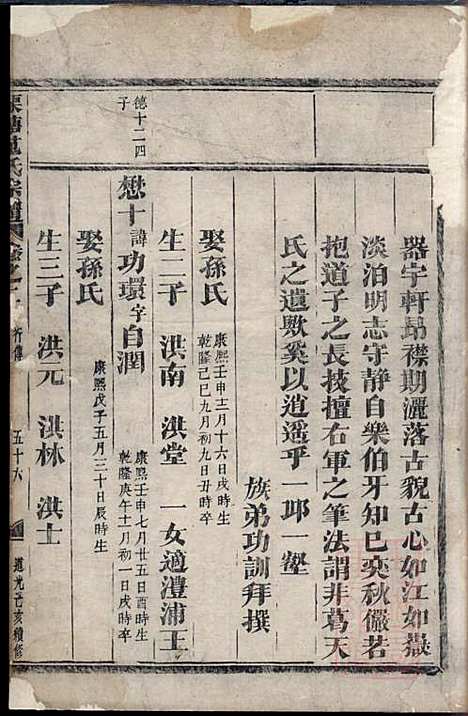 器宇軒昂襟期灑落古貌古心如江如嶽
淡泊明志守靜自樂伯牙知己奕秋儼若
抱道子之長技擅右軍之筆法謂非葛天
氏之遺歟奚以逍遥乎一邱一壑
族弟功訓拜撰
娶孫氏
康熙壬申十二月十六日戌時生
乾隆己巳九月初九日丑時卒
生二子 洪南 洪堂 一女適澧浦王
德十二四
子
懋十諱功環字自潤
康熙壬申七月廿五日酉時生
乾隆庚午十一月初一日戌時卒
娶孫氏
康熙戊子五月三十日辰時生
生三子 洪元 洪林 洪士
氏宗譜
卷之
行傳
五十六
道光己亥續修